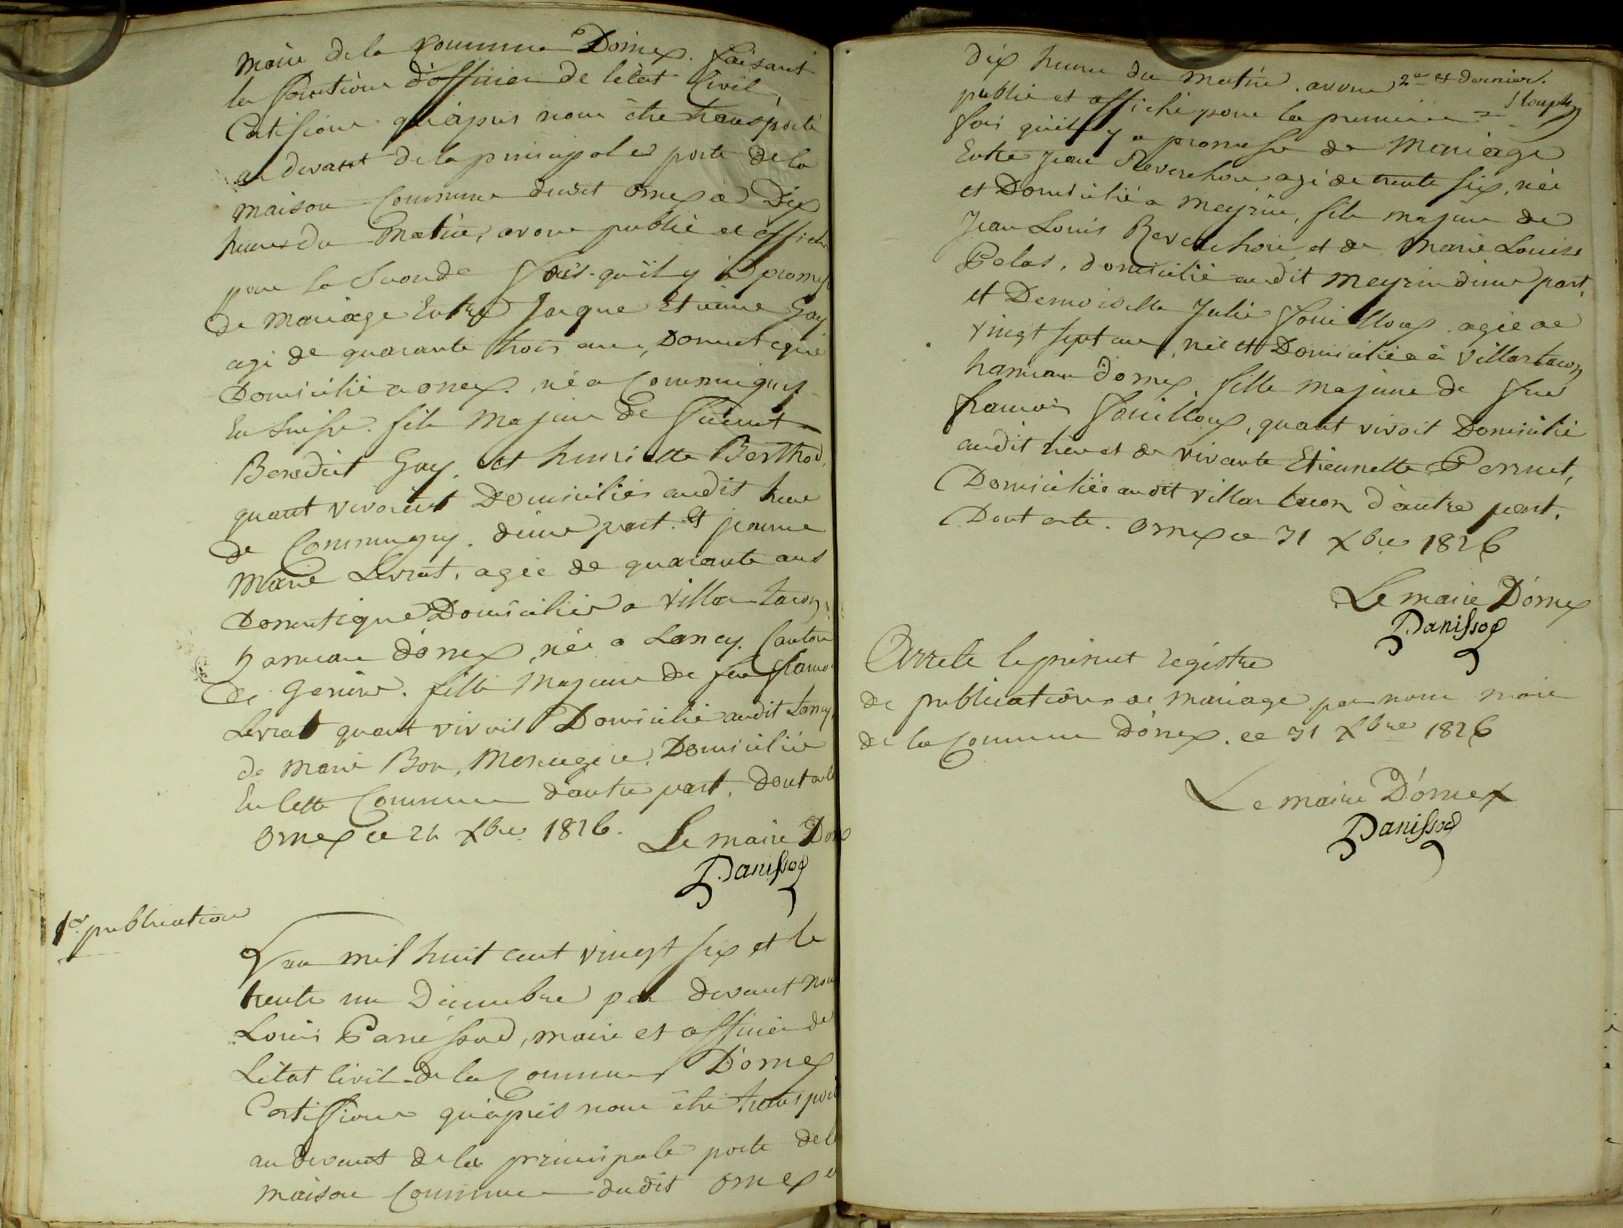 maire de la Commune D'ornex. faisant
les fonctions d'officier de l'état Civil
Certifions qu'après nous être transporté
au devant de la principale porte de la
maison Commune dudit ornex a Dix
heures du Matin, avons publié et affiché
pour la seconde fois qu'il y a promesse
de mariage Entre Jaque Etienne Gay
agé de quarante trois ans, Domestique
Domicilié a ornex, né a Commugny
En Suisse. fils Majeur de
Benedict Gay et henriette Berthod,
quant vivoient Domiciliés audit lieu
de Commugny. d'une part. Et jeanne
Marie Levrat, agée de quarante ans
Domestique Domiciliée a villar tacon,
hameau d'ornex, née a Lancy, Canton
de Genève. fille Majeure de feu
Levrat quant vivoit Domicilié audit Lancy,
de Marie Bon, Menagère, Domiciliée
En Cette Commune d'autre part. Dont acte
ornex ce 24 Xbre 1826. Le maire D'orn
Panissod
1er publication
L'an mil huit cent vingt six et le
trente un Décembre par devant nous
Louis Panissod, maire et officier de
L'état Civil de la Commune D'ornex
Certifions qu'après nous être transporté
au devant de la principale porte de la
maison Commune dudit ornex a
dix heures du matin. avons 2e et dernière.
publié et affiché pour la première
fois qu'il y a promesse de Mariage
Entre Jean Reverchon agé de trente six, né
et Domicilié a Meyrin, fils majeur de
Jean Louis Reverchon, et de Marie Louise
Pelas, domicilié audit Meyrin d'une part,
et Demoiselle Julie Fouilloux agée de
vingt sept ans, née et Domiciliée à Villar tacon
hameau d'ornex, fille majeure de feu
francois fouilloux, quant vivoit Domicilié
audit lieu et de vivante Etiennette Perrut,
Domiciliée audit villar tacon d'autre part.
Dont acte. ornex ce 31 Xbre 1826
Le maire D'ornex
Panissod
Arreté le présent registre
de publications de mariage par nous maire
de la Commune d'ornex. ce 31 Xbre 1826
Le maire D'ornex
Panissod